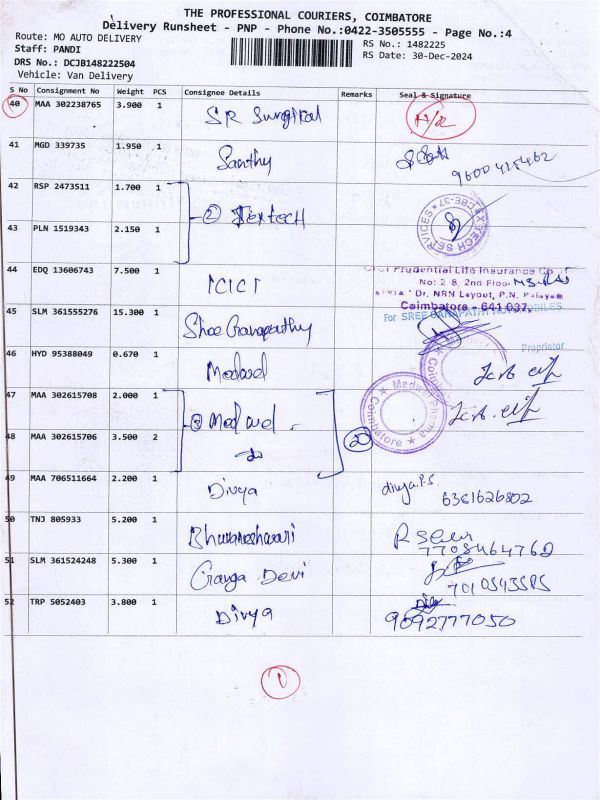 THE PROFESSIONAL COURIERS, COIMBATORE
Delivery Runsheet - PNP - Phone No.:0422-3505555 - Page No.:4
Route: MO AUTO DELIVERY
Staff: PANDI
RS No.: 1482225
DRS No.: DCJB148222504
RS Date: 30-Dec-2024
Vehicle: Van Delivery
S No Consignment No Weight PCS Consignee Details Remarks Seal & Signature
40 MAA 302238765 3.900 1 SR Surgikal
41 MGD 339735 1.950 1 Santhy 9600415462
42 RSP 2473511 1.700 1 ② Textech
43 PLN 1519343 2.150 1
44 EDQ 13606743 7.500 1 ICICI
Prudential Life Insurance Co
No: 2 8, 2nd Floor
Dr. NRN Layout, P.N. Palayam
Coimbatore - 641 037,
45 SLM 361555276 15.300 1 Shree Ganapathy
For SREE GANAPATHI
Proprietor
46 HYD 95388049 0.670 1 Medowel
47 MAA 302615708 2.000 1 Medowel
Medowel Pharma
Coimbatore
48 MAA 302615706 3.500 2
49 MAA 706511664 2.200 1 Divya divya.P.S. 6361626802
50 TNJ 805933 5.200 1 Bhuvaneshwari
51 SLM 361524248 5.300 1 Ganga Devi
52 TRP 5052403 3.800 1 Divya 9092777050
1